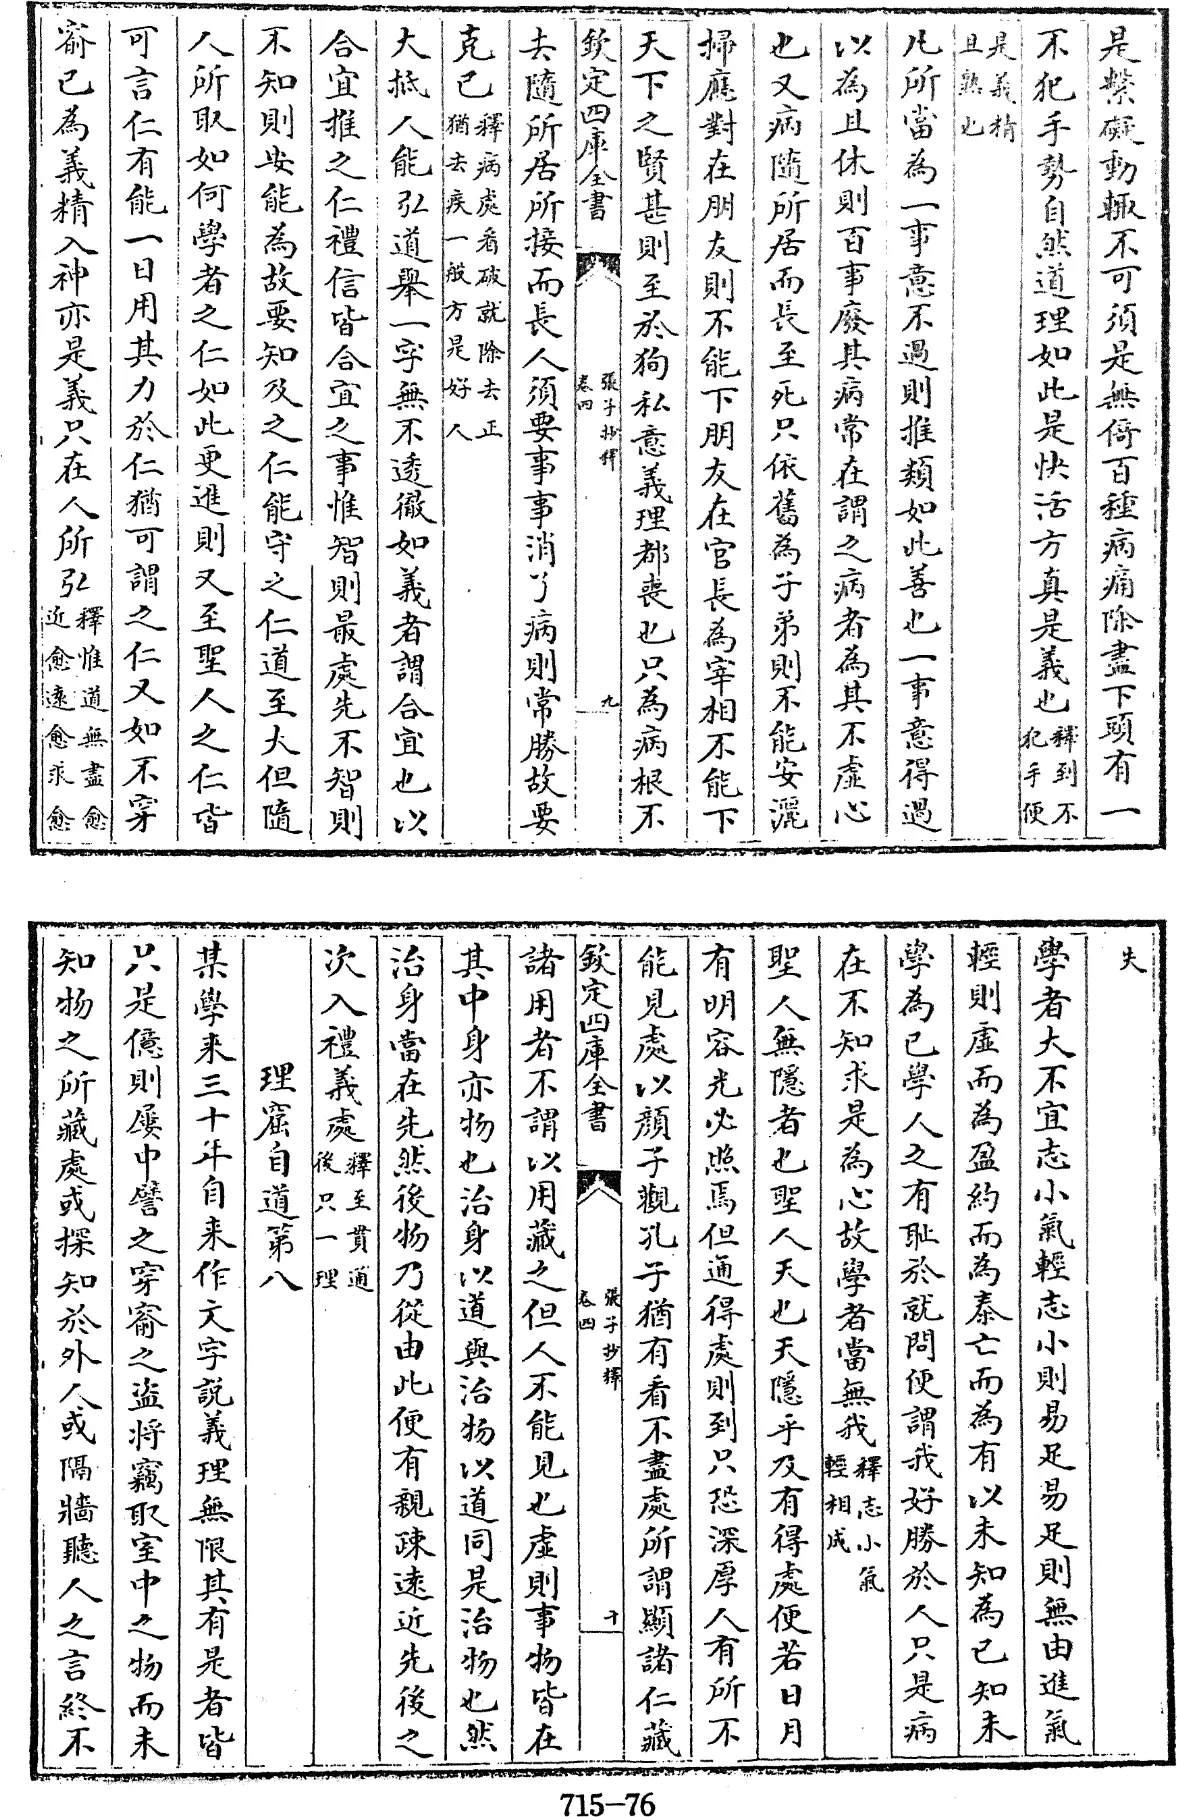 是縈礙動輒不可須是無倚百種病痛除盡下頭有一
不犯手勢自然道理如此是快活方真是義也釋到不犯手便
是義精且熟也
凡所當為一事意不過則推類如此善也一事意得過
以為且休則百事廢其病常在謂之病者為其不虛心
也又病隨所居而長至死只依舊為子弟則不能安灑
掃應對在朋友則不能下朋友在官長為宰相不能下
天下之賢甚則至於狥私意義理都喪也只為病根不
欽定四庫全書 張子抄釋卷四 九
去隨所居所接而長人須要事事消了病則常勝故要
克己釋病處看破就除去正猶去疾一般方是好人
大抵人能弘道舉一字無不透徹如義者謂合宜也以
合宜推之仁禮信皆合宜之事惟智則最處先不智則
不知則安能為故要知及之仁能守之仁道至大但隨
人所取如何學者之仁如此更進則又至聖人之仁皆
可言仁有能一日用其力於仁猶可謂之仁又如不穿
窬已為義精入神亦是義只在人所弘釋惟道無盡愈近愈遠愈求愈
失
學者大不宜志小氣輕志小則易足易足則無由進氣
輕則虛而為盈約而為泰亡而為有以未知為已知未
學為已學人之有耻於就問便謂我好勝於人只是病
在不知求是為心故學者當無我釋志小氣輕相成
聖人無隱者也聖人天也天隱乎及有得處便若日月
有明容光必照焉但通得處則到只恐深厚人有所不
能見處以顏子觀孔子猶有看不盡處所謂顯諸仁藏
欽定四庫全書 張子抄釋卷四 十
諸用者不謂以用藏之但人不能見也虛則事物皆在
其中身亦物也治身以道與治物以道同是治物也然
治身當在先然後物乃從由此便有親疎遠近先後之
次入禮義處釋至貫通後只一理
理窟自道第八
某學來三十年自来作文字説義理無限其有是者皆
只是億則屢中譬之穿窬之盗將竊取室中之物而未
知物之所藏處或探知於外人或隔牆聽人之言終不
715-76